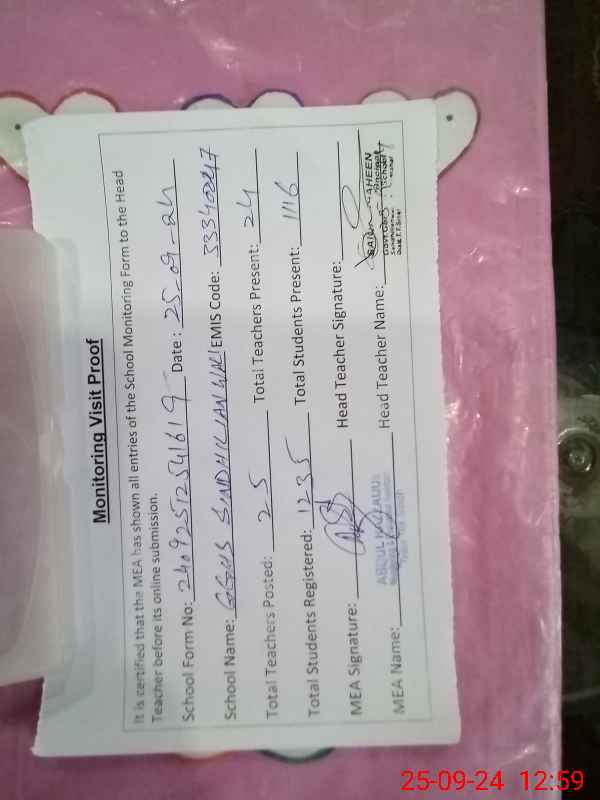 Monitoring Visit Proof
It is certified that the MEA has shown all entries of the School Monitoring Form to the Head
Teacher before its online submission.
School Form No: 24092572541619 Date : 25-09-24
School Name: GGHS SINDHILIANWALI EMIS Code: 33340247
Total Teachers Posted: 25 Total Teachers Present: 24
Total Students Registered: 1235 Total Students Present: 1116
MEA Signature: Head Teacher Signature:
MEA Name: ABDUL Head Teacher Name:
25-09-24 12:59